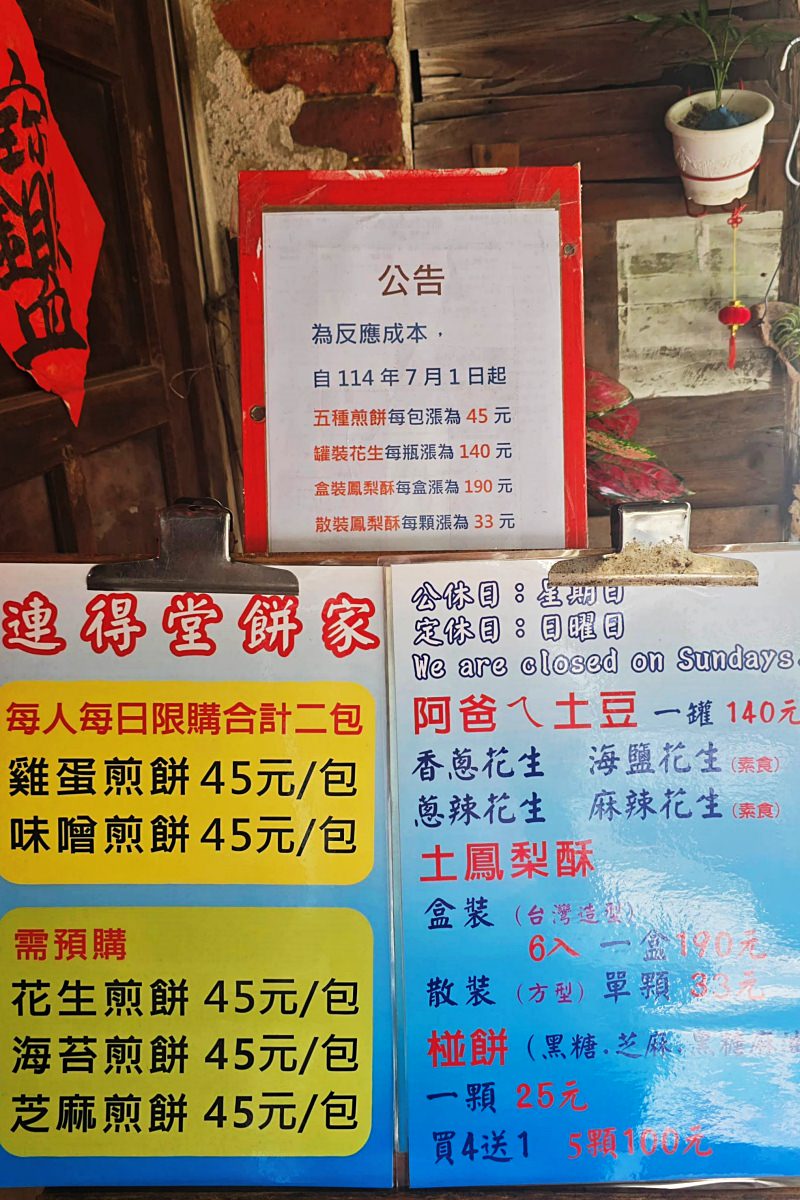 公告
為反應成本，
自 114 年 7 月 1 日起
五種煎餅每包漲為 45 元
罐裝花生每瓶漲為 140 元
盒裝鳳梨酥每盒漲為 190 元
散裝鳳梨酥每顆漲為 33 元
連得堂餅家
每人每日限購合計二包
雞蛋煎餅 45元/包
味噌煎餅 45元/包
需預購
花生煎餅 45元/包
海苔煎餅 45元/包
芝麻煎餅 45元/包
公休日：星期日
定休日：日曜日
We are closed on Sundays.
阿爸ㄟ土豆 一罐 140元
香蔥花生 海鹽花生(素食)
蔥辣花生 麻辣花生(素食)
土鳳梨酥
盒裝（台灣造型）
6入 一盒190元
散裝（方型）單顆 33元
椪餅（黑糖.芝麻.黑糖麻
一顆 25元
買4送1 5顆100元